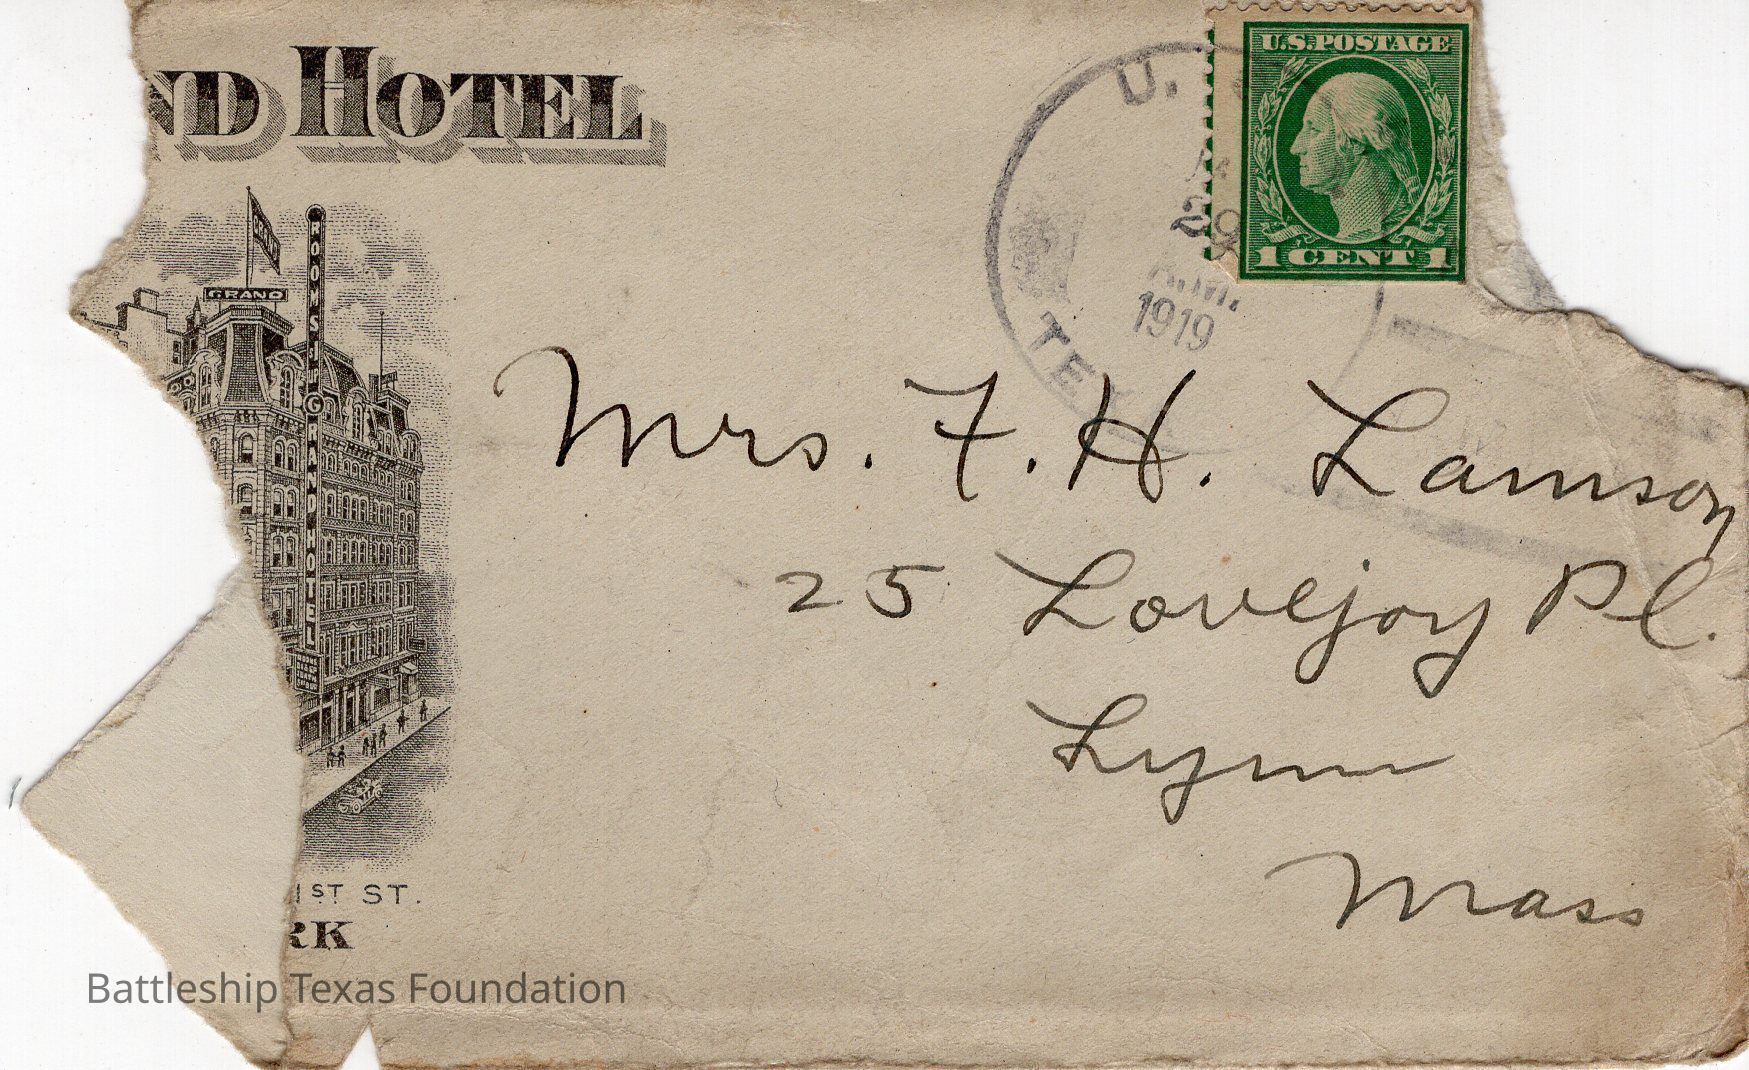 ND HOTEL
U.S. POSTAGE
1 CENT 1
U.
20
A.M.
1919
TE
GRAND
GRAND
ROOMS
GRAND HOTEL
Mrs. F. H. Lamson
25 Lovejoy Pl.
Lynn
Mass
1ST ST.
RK
Battleship Texas Foundation